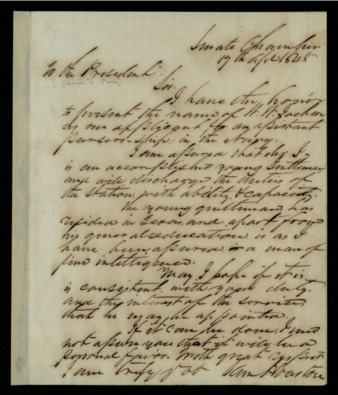 Senate Chamber
17th Apl 1848
To the President
Sir
I have the honor
to present the name of W. W. Jackson
as an applicant for an assistant
pursership, in the Navy.
I am assured that he
is an accomplished young gentleman
and will discharge the duties of
the station, with ability & capacity.
The young gentleman has
resided in Texas, and apart from
his general education is as I
have been assured a man of
fine intelligence.
May I hope if it is
consistent with your duty
and the interest of the service
that he may be appointed.
If it can be done, I need
not assure you that it will be a
personal favor. With great respect
I am truly yr obt Sam Houston